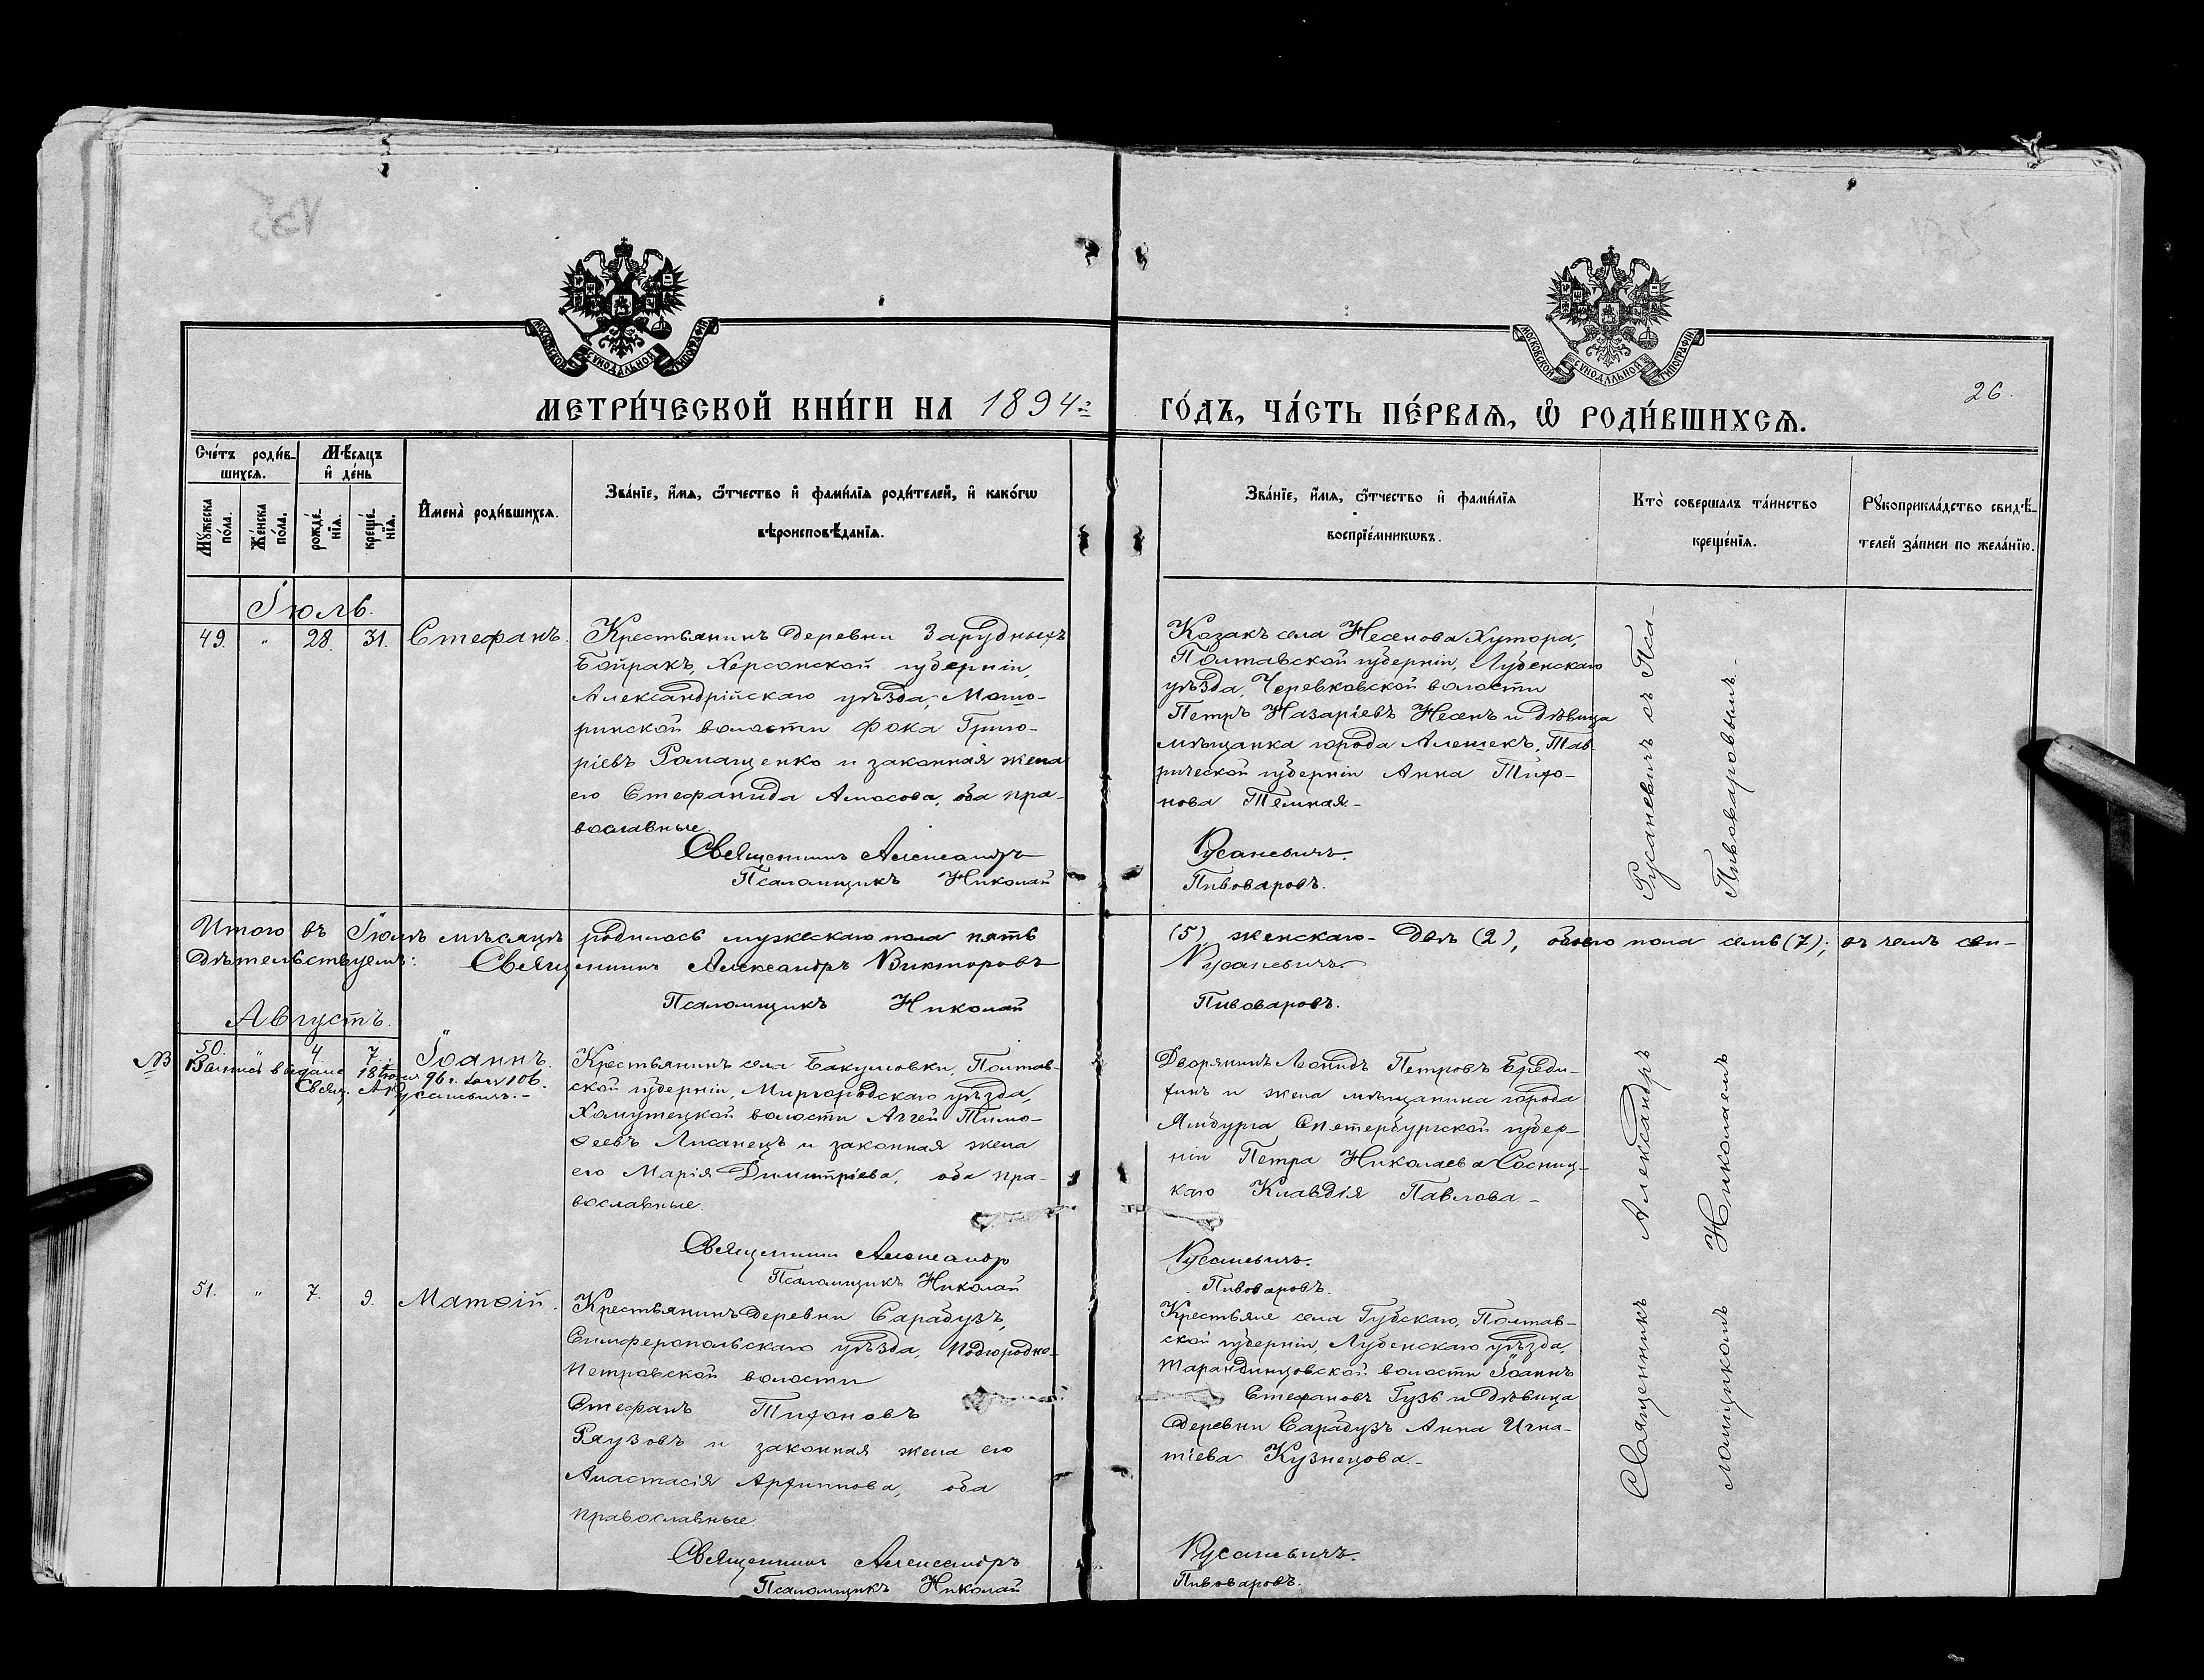 МОСКОВСКОЙ СѴНОДАЛЬНОЙ ТИПОГРАФІИ
МОСКОВСКОЙ СѴНОДАЛЬНОЙ ТИПОГРАФІИ
26.
МЕТРИ́ЧЕСКОЙ КНИ́ГИ НА 1894 ГО́ДЪ, ЧА́СТЬ ПЕ́РВАѦ, Ѡ҆ РОДИ́ВШИХСѦ.
Сче́тъ роди́в-
шихсѧ.
Мѣ́сяцъ
и҆ де́нь
Мꙋ́жеска
по́ла.
Же́нска
по́ла.
рожде́-
нїѧ.
креще́-
нїѧ.
И҆мена̀ роди́вшихсѧ.
Зва́нїе, и҆́мѧ, ѻ҆́тчество и҆ фами́лїѧ роди́телей, и҆ како́гѡ
вѣроисповѣ́данїѧ.
Зва́нїе, и҆́мѧ, ѻ҆́тчество и҆ фами́лїѧ
воспрїе́мникѡвъ.
Кто̀ соверша́лъ та́инство
креще́нїѧ.
Рꙋкоприкла́дство свидѣ́-
телей за́писи по жела́нїю.
Іюль.
49. " 28. 31. Стефанъ.
Крестьянинъ деревни Зарудныхъ
Байракъ, Херсонской губерніи,
Александрійскаго уѣзда, Мошо-
ринской волости Фока Григо-
ріевъ Ромащенко и законная жена
его Стефанида Амосова, оба пра-
вославные.
Священникъ Александръ
Псаломщикъ Николай
Козакъ села Несенова Хутора,
Полтавской губерніи, Лубенскаго
уѣзда, Черевковской волости
Петръ Назаріевъ Несенъ и дѣвица
мѣщанка города Алешекъ, Тав-
рической губерніи Анна Тихо-
нова Темная.-
Русаневичъ.
Пивоваровъ.
Русаневичъ съ Пса-
Пивоваровымъ.-
Итого въ Іюлѣ мѣсяцѣ родилось мужескаго пола пять (5) женскаго - двѣ (2), обоего пола семь (7); въ чемъ сви-
дѣтельствуемъ: Священникъ Александръ Викторовъ Русаневичъ.
Псаломщикъ Николай Пивоваровъ.
Августъ.
NB 50. " 4. 7. Іоаннъ.
выдана 18
96 г. за № 106.
Свящ. А Русаневичъ.-
Крестьянинъ села Бакумовки, Полтав-
ской губерніи, Миргородскаго уѣзда,
Хомутецкой волости Аггей Тимо-
ѳеевъ Лисанецъ и законная жена
его Марія Димитріева, оба пра-
вославные.
Священникъ Александръ
Псаломщикъ Николай
Дворянинъ Леонидъ Петровъ Бреди-
хинъ и жена мѣщанина города
Ямбурга Спетербургской губер-
ніи Петра Николаева Сосниц-
каго Клавдія Павлова.-
Русаневичъ.
Пивоваровъ.
51. " 7. 9. Матѳій.
Крестьянинъ деревни Сарабузъ,
Симферопольскаго уѣзда, Подгородне-
Петровской волости
Стефанъ Тихоновъ
Раузовъ и законная жена его
Анастасія Архиппова, оба
православные.
Священникъ Александръ
Псаломщикъ Николай
Крестьяне села Губскаго, Полтав-
ской губерніи, Лубенскаго уѣзда,
Тарандинцовской волости Іоаннъ
Стефановъ Гузь и дѣвица
деревни Сарабузъ Анна Игна-
тіева Кузнецова.-
Русаневичъ.
Пивоваровъ.
Священникъ Александръ
ломщикомъ Николаемъ